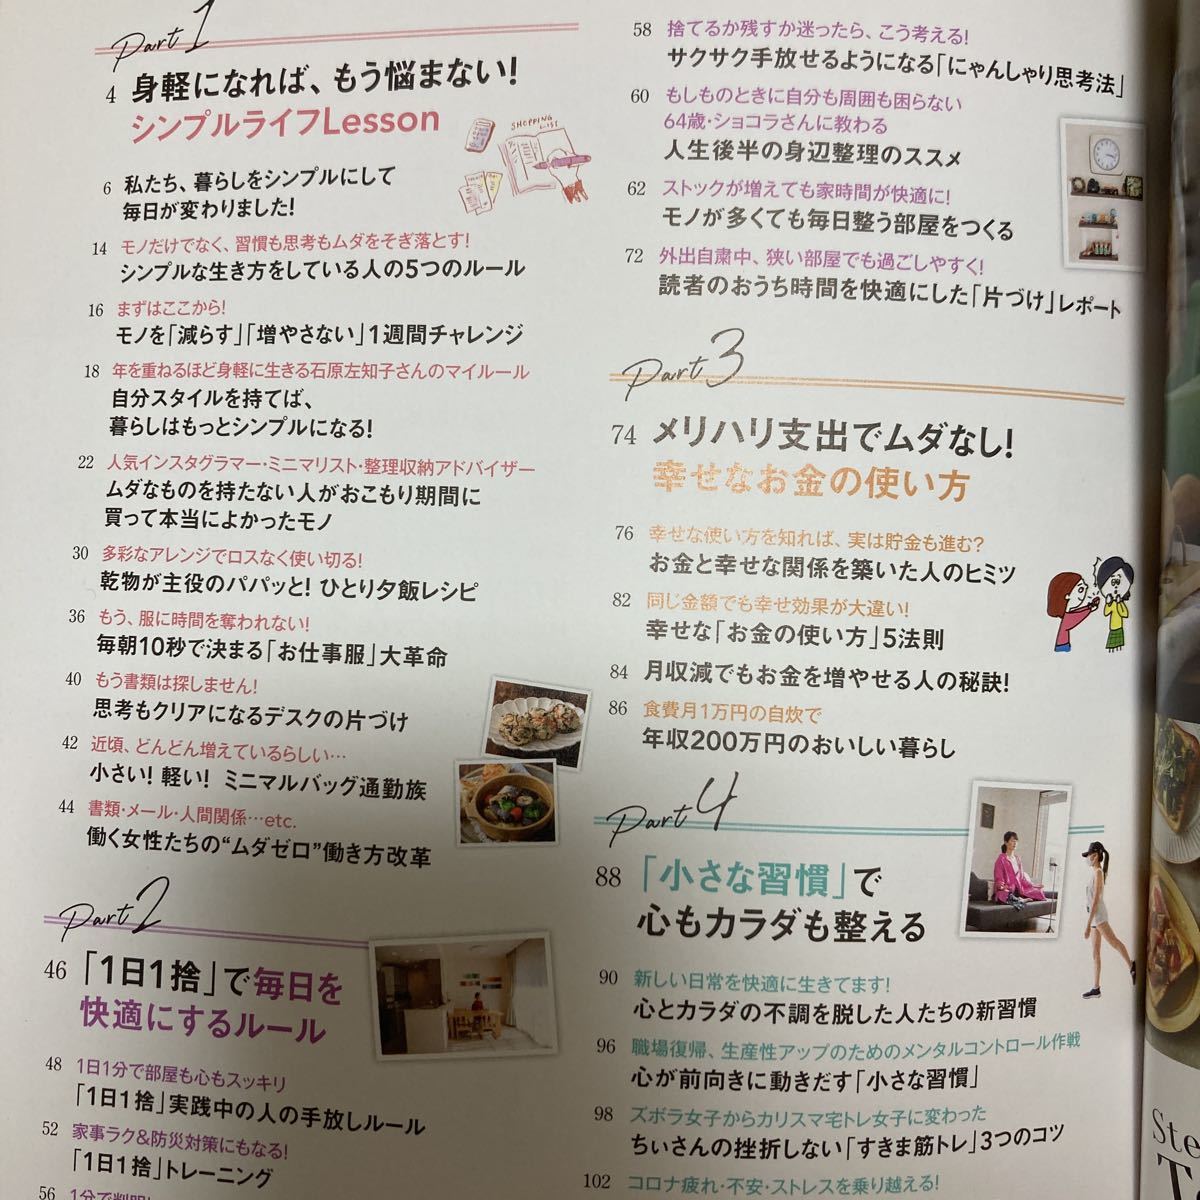 Part 1
4 身軽になれば、もう悩まない!
シンプルライフLesson
SHOPPING
LIST
6 私たち、暮らしをシンプルにして
毎日が変わりました!
14 モノだけでなく、習慣も思考もムダをそぎ落とす!
シンプルな生き方をしている人の5つのルール
16 まずはここから!
モノを「減らす」「増やさない」1週間チャレンジ
18 年を重ねるほど身軽に生きる石原左知子さんのマイルール
自分スタイルを持てば、
暮らしはもっとシンプルになる!
22 人気インスタグラマー・ミニマリスト・整理収納アドバイザー
ムダなものを持たない人がおこもり期間に
買って本当によかったモノ
30 多彩なアレンジでロスなく使い切る!
乾物が主役のパパッと! ひとり夕飯レシピ
36 もう、服に時間を奪われない!
毎朝10秒で決まる「お仕事服」大革命
40 もう書類は探しません!
思考もクリアになるデスクの片づけ
42 近頃、どんどん増えているらしい…
小さい! 軽い! ミニマルバッグ通勤族
44 書類・メール・人間関係…etc.
働く女性たちの“ムダゼロ”働き方改革
Part 2
46 「1日1捨」で毎日を
快適にするルール
48 1日1分で部屋も心もスッキリ
「1日1捨」実践中の人の手放しルール
52 家事ラク&防災対策にもなる!
「1日1捨」トレーニング
56 1分で判明!
58 捨てるか残すか迷ったら、こう考える!
サクサク手放せるようになる「にゃんしゃり思考法」
60 もしものときに自分も周囲も困らない
64歳・ショコラさんに教わる
人生後半の身辺整理のススメ
62 ストックが増えても家時間が快適に!
モノが多くても毎日整う部屋をつくる
72 外出自粛中、狭い部屋でも過ごしやすく!
読者のおうち時間を快適にした「片づけ」レポート
Part 3
74 メリハリ支出でムダなし!
幸せなお金の使い方
76 幸せな使い方を知れば、実は貯金も進む?
お金と幸せな関係を築いた人のヒミツ
82 同じ金額でも幸せ効果が大違い!
幸せな「お金の使い方」5法則
84 月収減でもお金を増やせる人の秘訣!
86 食費月1万円の自炊で
年収200万円のおいしい暮らし
Part 4
88 「小さな習慣」で
心もカラダも整える
90 新しい日常を快適に生きてます!
心とカラダの不調を脱した人たちの新習慣
96 職場復帰、生産性アップのためのメンタルコントロール作戦
心が前向きに動きだす「小さな習慣」
98 ズボラ女子からカリスマ宅トレ女子に変わった
ちぃさんの挫折しない「すきま筋トレ」3つのコツ
102 コロナ疲れ・不安・ストレスを乗り越える!
Ste